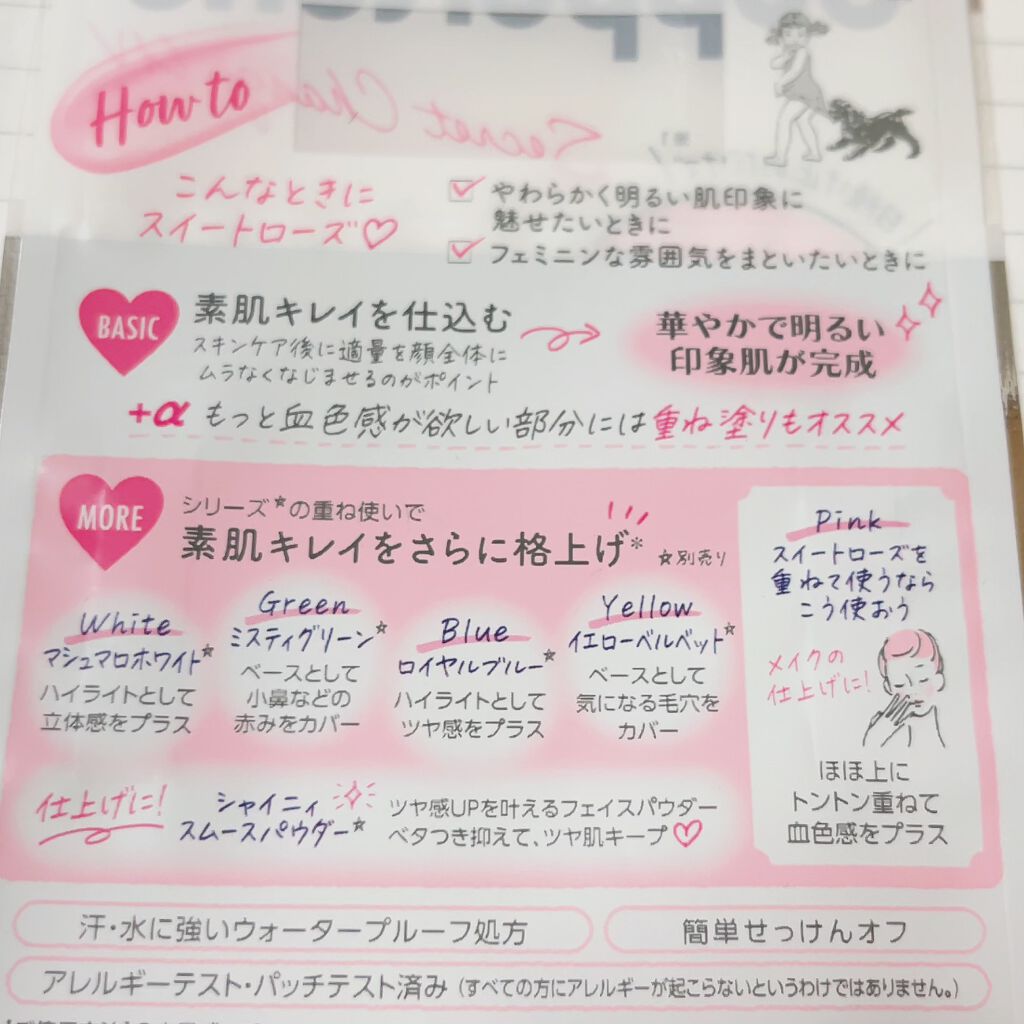 How to
こんなときに
スイートローズ♡
やわらかく明るい肌印象に
魅せたいときに
フェミニンな雰囲気をまといたいときに
BASIC
素肌キレイを仕込む
スキンケア後に適量を顔全体に
ムラなくなじませるのがポイント
華やかで明るい
印象肌が完成
+α もっと血色感が欲しい部分には重ね塗りもオススメ
MORE
シリーズ☆の重ね使いで
素肌キレイをさらに格上げ*
☆別売り
White
マシュマロホワイト☆
ハイライトとして
立体感をプラス
Green
ミスティグリーン☆
ベースとして
小鼻などの
赤みをカバー
Blue
ロイヤルブルー☆
ハイライトとして
ツヤ感をプラス
Yellow
イエローベルベット☆
ベースとして
気になる毛穴を
カバー
Pink
スイートローズを
重ねて使うなら
こう使おう
メイクの
仕上げに!
ほほ上に
トントン重ねて
血色感をプラス
仕上げに!
シャイニィ
スムースパウダー☆
ツヤ感UPを叶えるフェイスパウダー
ベタつき抑えて、ツヤ肌キープ♡
汗・水に強いウォータープルーフ処方
簡単せっけんオフ
アレルギーテスト・パッチテスト済み(すべての方にアレルギーが起こらないというわけではありません。)